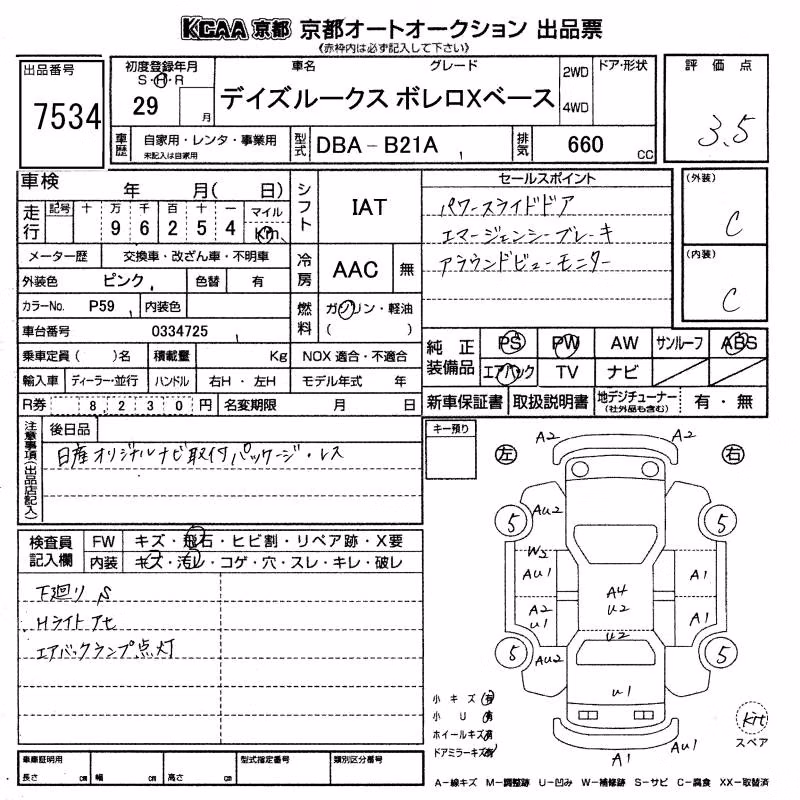 KCAA 京都 京都オートオークション 出品票
《赤枠内は必ず記入して下さい》
出品番号
7534
初度登録年月
S・H・R
29 月
車名 グレード
デイズルークス ボレロXベース
2WD
4WD
ドア・形状
評価点
3.5
車歴
自家用・レンタ・事業用
未記入は自家用
型式
DBA－B21A
排気
660 cc
車検 年 月( 日)
走行
記号 十 万 千 百 十 一 マイル
9 6 2 5 4 Km
シフト
IAT
メーター歴 交換車・改ざん車・不明車
冷房
AAC 無
外装色 ピンク 色替 有
カラーNo. P59 内装色
燃料
ガソリン・軽油
( )
車台番号 0334725
乗車定員( )名 積載量 Kg NOX 適合・不適合
輸入車 ディーラー・並行 ハンドル 右H・左H モデル年式 年
R券 8,230円 名変期限 月 日
セールスポイント
パワースライドドア
エマージェンシーブレーキ
アラウンドビューモニター
(外装)
C
(内装)
C
純正装備品
PS PW AW サンルーフ ABS
エアバック TV ナビ
新車保証書 取扱説明書 地デジチューナー(社外品も含む) 有・無
注意事項(出品店記入)
後日品
日産オリジナルナビ取付パッケージ・レス
キー預り
検査員記入欄
FW キズ・飛石・ヒビ割・リペア跡・X要
内装 キズ・汚レ・コゲ・穴・スレ・キレ・破レ
下廻りS
Hライトアセ
エアバックランプ点灯
左 右
A2 A2
5 AU2 5
W5
AU1 A1
A4
U2
A2
U1 A1
U2
5 AU2 5
U1
A1 AU1
小キズ 有
小U 有
ホイールキズ 有
ドアミラーキズ 有
Kit
スペア
車庫証明用
長さ cm 幅 cm 高さ cm
型式指定番号 類別区分番号
A－線キズ M－調整跡 U－凹み W－補修跡 S－サビ C－腐食 XX－取替済